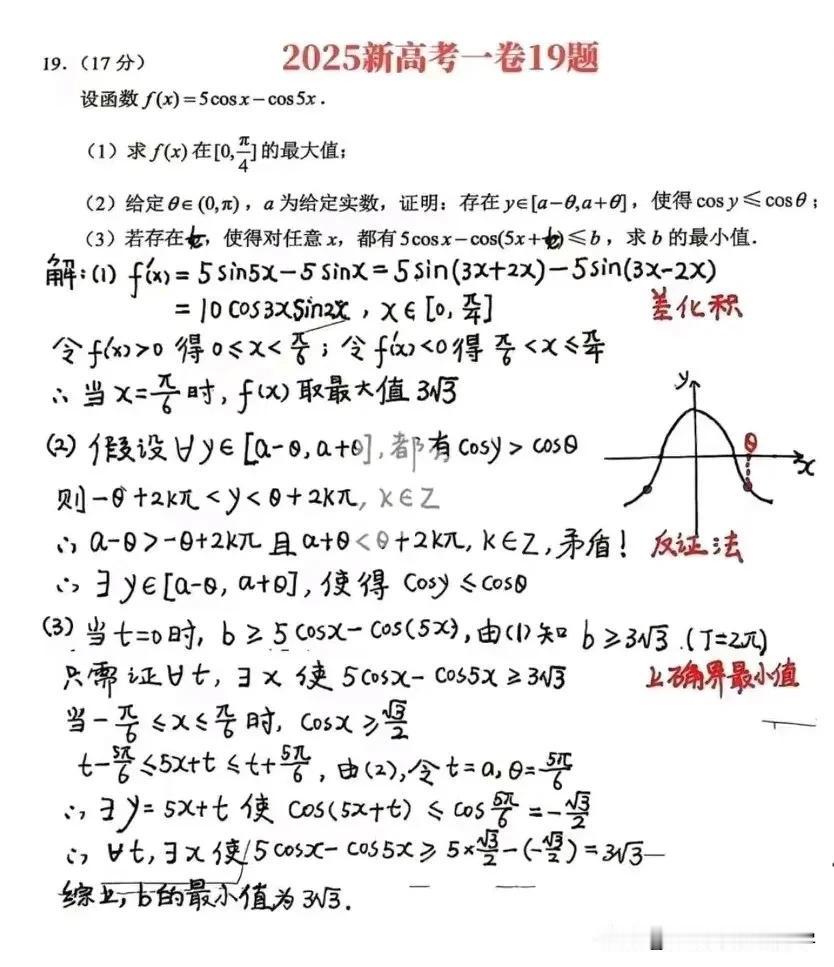 2025新高考一卷19题
19.（17分）
设函数 f(x)=5cosx−cos5x．
（1）求 f(x) 在[0,π/4]的最大值；
（2）给定θ∈(0,π)，a 为给定实数，证明：存在 y∈[a−θ,a+θ]，使得cosy≤cosθ；
（3）若存在t，使得对任意 x，都有5cosx−cos(5x+t)≤b，求 b 的最小值．
解:(1) f'(x) = 5sin5x−5sinx = 5sin(3x+2x)−5sin(3x−2x)
= 10cos3xsin2x , x∈[0, π/4]
差化积
令f'(x)>0 得 0≤x<π/6 ; 令f'(x)<0得 π/6<x≤π/4
∴ 当x=π/6时, f(x)取最大值 3√3
y
(2) 假设∀y∈[a−θ, a+θ],都有 cosy > cosθ
θ
x
则−θ+2kπ < y < θ+2kπ, k∈Z
∴ a−θ>−θ+2kπ 且 a+θ<θ+2kπ, k∈Z, 矛盾! 反证法
∴ ∃ y∈[a−θ, a+θ], 使得 cosy≤cosθ
(3) 当t=0时, b≥5cosx−cos(5x),由(1)知 b≥3√3 .(T=2π)
只需证∀t, ∃x 使 5cosx−cos5x≥3√3
上确界最小值
当−π/6≤x≤π/6时, cosx≥√3/2
t−5π/6≤5x+t≤t+5π/6, 由(2),令t=a,θ=5π/6
∴ ∃y=5x+t 使 cos(5x+t) ≤ cos5π/6=−√3/2
∴ ∀t,∃x使 5cosx−cos5x≥5×√3/2−(−√3/2)=3√3
综上, b的最小值为3√3.